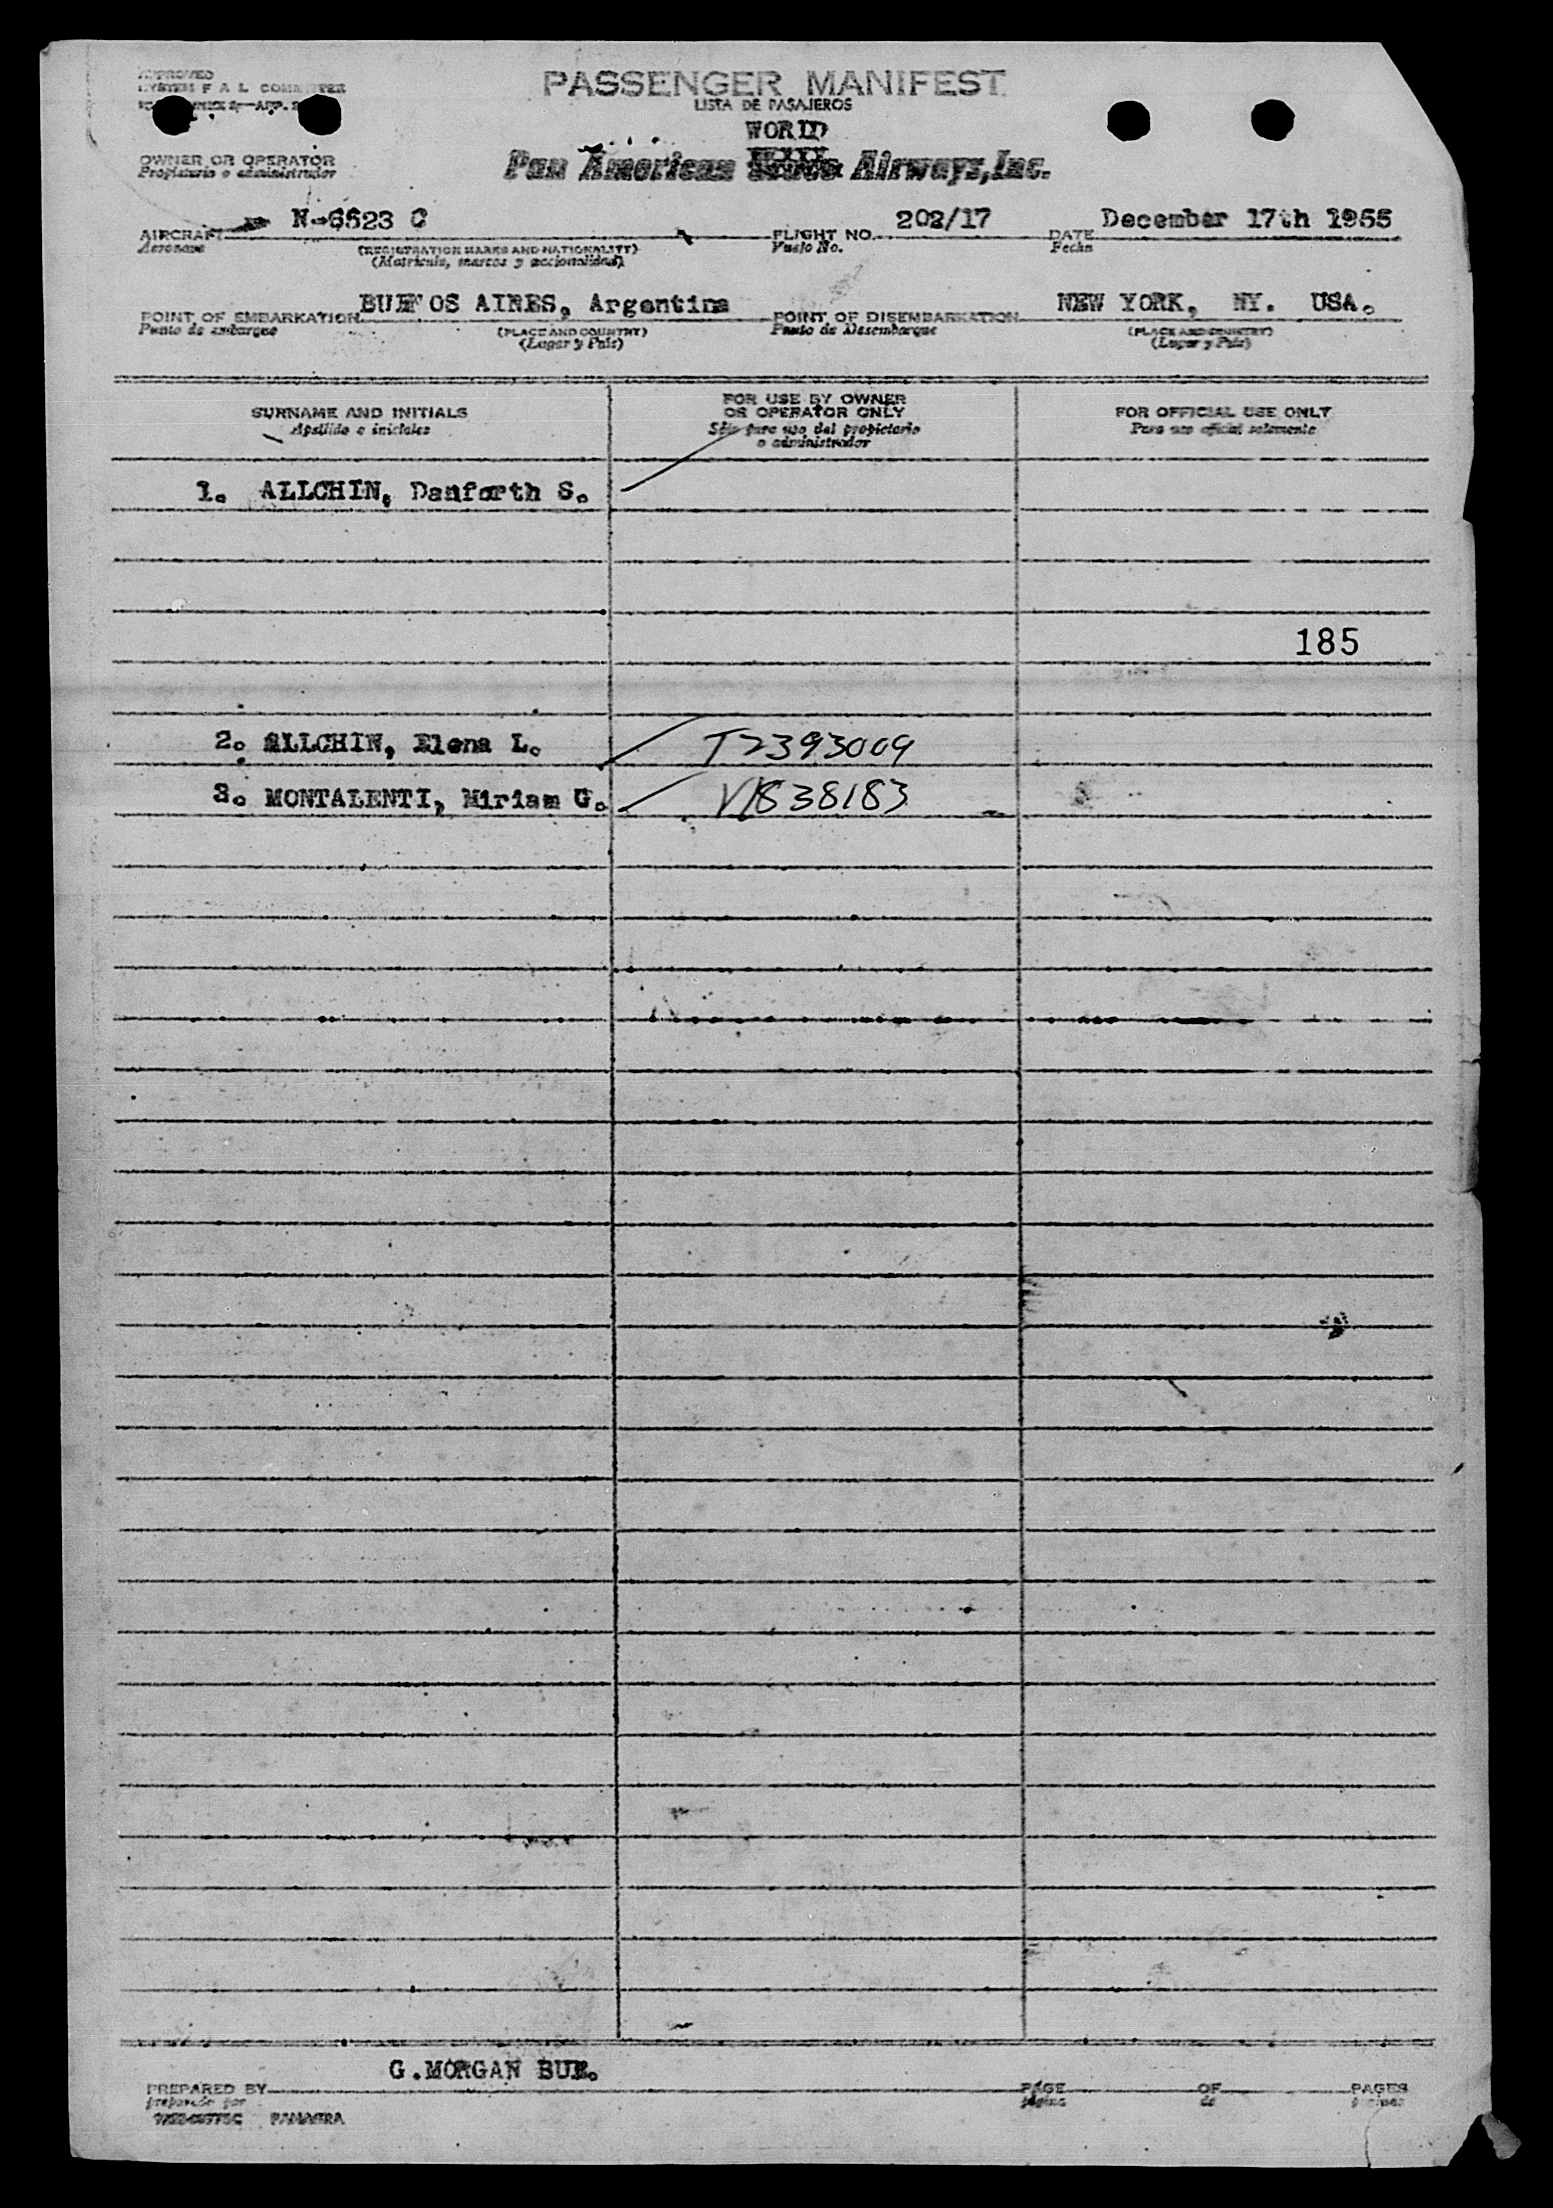 APPROVED
SYSTEM F A L COMMITTEE
PASSENGER MANIFEST
LISTA DE PASAJEROS
WORLD
OWNER OR OPERATOR
Propietario o administrador
Pan American Airways, Inc.
AIRCRAFT N-6523 C FLIGHT NO. 202/17 DATE December 17th 1955
Aeronave (REGISTRATION MARKS AND NATIONALITY) Vuelo No. Fecha
(Matrícula, marcas y nacionalidad)
POINT OF EMBARKATION BUENOS AIRES, Argentina POINT OF DISEMBARKATION NEW YORK, NY. USA.
Punto de embarque (PLACE AND COUNTRY) Punto de Desembarque (PLACE AND COUNTRY)
(Lugar y País) (Lugar y País)
SURNAME AND INITIALS FOR USE BY OWNER OR OPERATOR ONLY FOR OFFICIAL USE ONLY
Apellido e iniciales Sólo para uso del propietario o administrador Para uso oficial solamente
1. ALLCHIN, Danforth S.
185
2. ALLCHIN, Elena L. T2393009
3. MONTALENTI, Miriam G. V1838183
G.MORGAN BUE.
PREPARED BY PAGE OF PAGES
preparado por página de páginas
PANAGRA